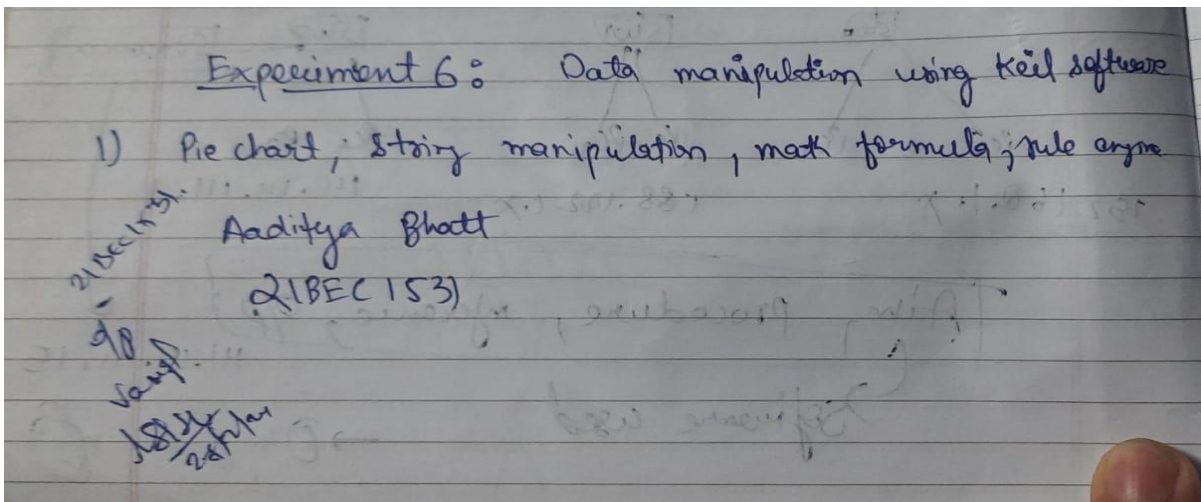 Experiment 6: Data manipulation using Keil software
1) Pie chart, string manipulation, math formula, rule engine
Aaditya Bhatt
21BEC153)
21BEC153).